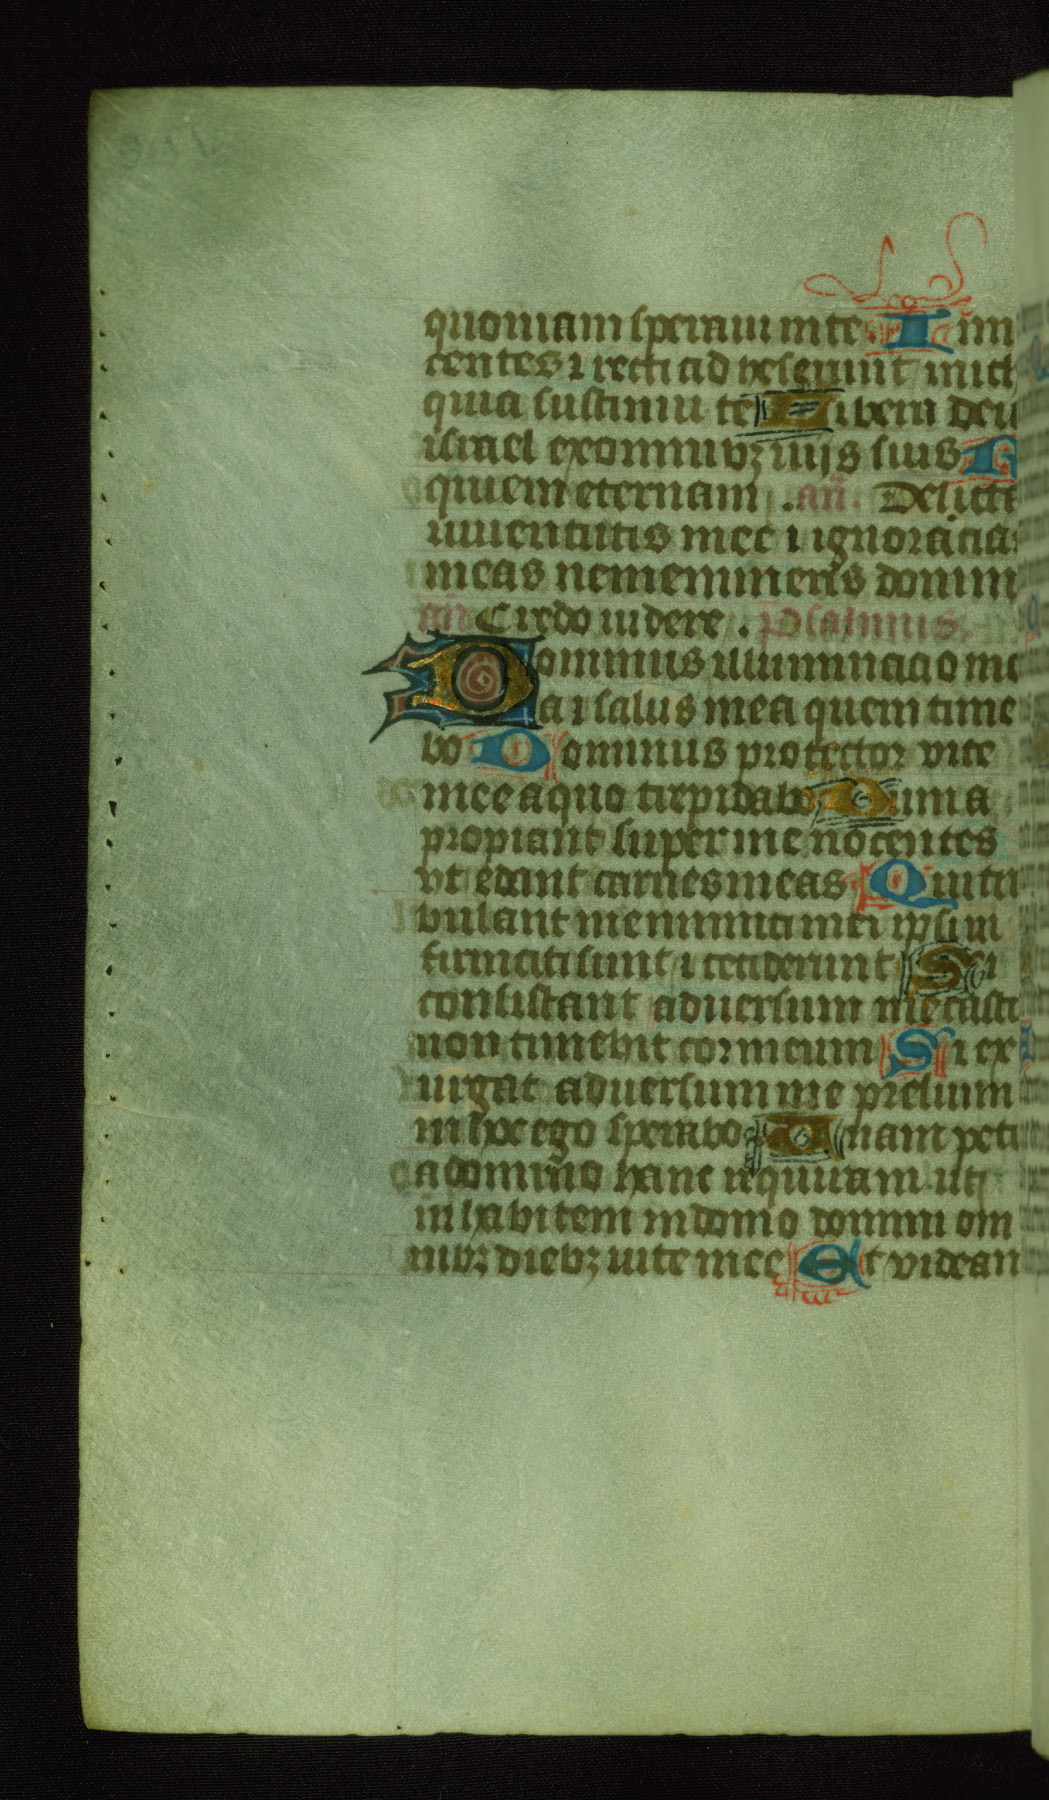 quoniam speraui in te Inno
centes ⁊ recti adheserunt mich
quia sustinui te Libera deu
israel ex omnibꝫ angustijs suis R
quiem eternam . an̄. Delicta
iuuentutis mee ⁊ ignorācia
meas ne meminer̄s domin
an̄ Credo uidere . Psalmus.
Dominus illuminacio me
a ⁊ salus mea quem time
bo Dominus protector vite
mee a quo trepidabo Dum a
propiant super me nocentes
vt edant carnes meas Qui tri
bulant me inimici mei ipsi in
firmati sunt ⁊ ceciderunt Si
consistant aduersum me castr
non timebit cor meum Si ex
urgat aduersum me prelium
in hoc ego sperabo Unam peti
a domino hanc requiram ut
inhabitem in domo domini om
nibꝫ diebꝫ uite mee Et videan